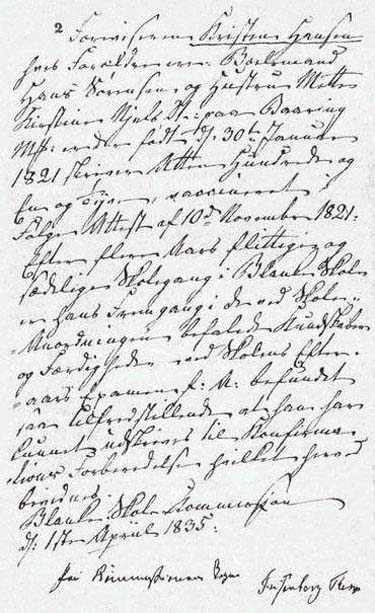 2
Foreviseren Kristen Hansen
hvis Forældre ere: Boelsmand
Hans Sørensen og Hustru Mette
Kirstine Niels Dt: paa Baaring
Mk: er den født d: 30te Januar
1821 skriver Atten Hundrede og
En og Tyve, vaccineret i
Følge Attest af 10de November 1821.
Efter flere Aars flittige og
sædelige Skolegang i Blanke Skole
er hans Fremgang i de ved Skole-
Anordningen befalede Kundskaber
og Færdigheder ved Skolens Efter-
aars Examen f: A: befundet
saa tilfredsstillende at han har
kunnet udskrives til Konfirma-
tions Forberedelse hvilket herved
bevidnes.
Blanke Skole Kommission
d: 1ste April 1835.